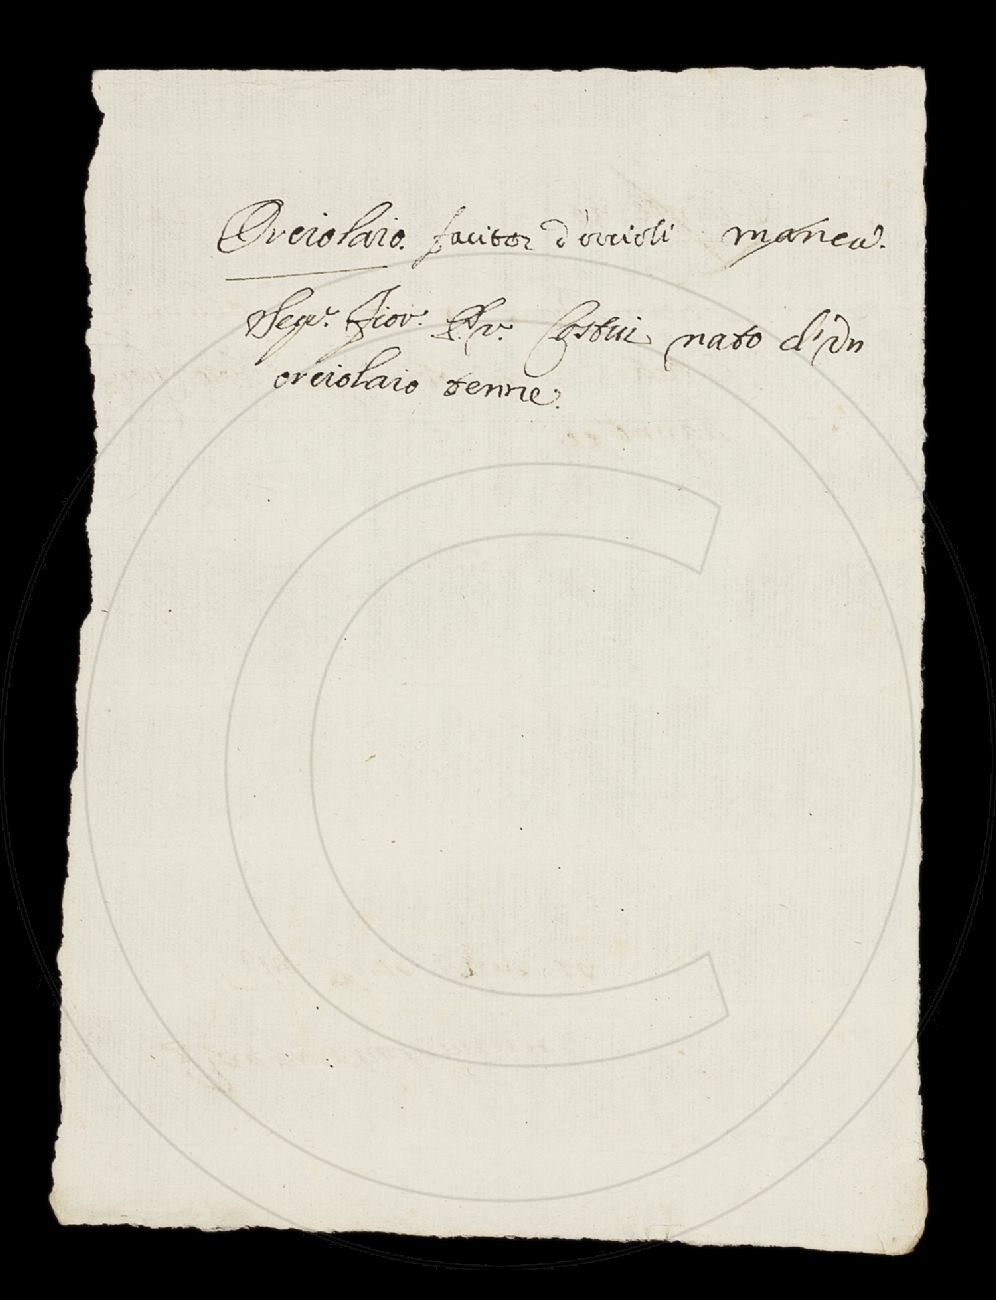 Orciolaio. facitor d'orcioli manca.
Segr. Fior. Pr. Costui nato d'un
orciolaio tenne.